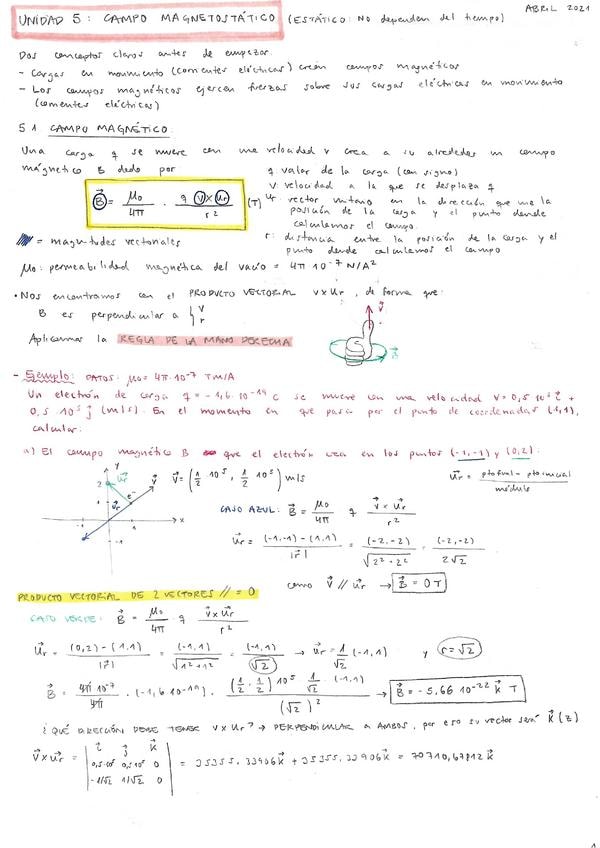 UNIDAD 5: CAMPO MAGNETOSTÁTICO (ESTÁTICO: No dependen del tiempo)
ABRIL 2021
Dos conceptos claros antes de empezar:
- Cargas en movimiento (corrientes eléctricas) crean campos magnéticos
- Los campos magnéticos ejercen fuerzas sobre sus cargas eléctricas en movimiento
(corrientes eléctricas)
5.1 CAMPO MAGNÉTICO:
Una carga q se mueve con una velocidad v crea a su alrededor un campo
magnético B dado por
B⃗ = μ₀/4π · q v × ur / r² (T)
q valor de la carga (con signo)
v: velocidad a la que se desplaza q
ur vector unitario en la dirección que une la
posición de la carga y el punto donde
calculamos el campo.
r: distancia entre la posición de la carga y el
punto donde calculamos el campo
= magnitudes vectoriales
μ₀: permeabilidad magnética del vacío = 4π 10⁻⁷ N/A²
• Nos encontramos con el PRODUCTO VECTORIAL v×ur, de forma que:
B es perpendicular a { v
r
Aplicamos la REGLA DE LA MANO DERECHA
v⃗
B⃗
- Ejemplo: DATOS: μ₀ = 4π·10⁻⁷ Tm/A
Un electrón de carga q = -1,6·10⁻¹⁹ C se mueve con una velocidad v = 0,5 10⁵ i⃗ +
0,5 10⁵ j⃗ (m/s). En el momento en que pasa por el punto de coordenadas (1,1),
calcular:
a) El campo magnético B que el electrón crea en los puntos (-1,-1) y (0,2):
v⃗ = (1/2 10⁵, 1/2 10⁵) m/s
u⃗r = pto final - pto inicial / módulo
y
2
u⃗r
v⃗
1
e⁻
u⃗r
-1
1
x
-1
CASO AZUL: B⃗ = μ₀/4π q v⃗ × u⃗r / r²
u⃗r = (-1,-1) - (1,1) / |r⃗| = (-2,-2) / √(2²+2²) = (-2,-2) / 2√2
como v⃗ // u⃗r → B⃗ = 0 T
PRODUCTO VECTORIAL DE 2 VECTORES // = 0
CASO VERDE: B⃗ = μ₀/4π q v⃗ × u⃗r / r²
u⃗r = (0,2) - (1,1) / |r⃗| = (-1,1) / √(1²+1²) = (-1,1) / √2 → u⃗r = 1/√2 (-1,1) y r = √2
B⃗ = 4π 10⁻⁷ / 4π · (-1,6 10⁻¹⁹) · (1/2, 1/2) 10⁵ 1/√2 · (-1,1) / (√2)² → B⃗ = -5,66 10⁻²² k⃗ T
¿QUÉ DIRECCIÓN DEBE TENER v×ur? → PERPENDICULAR A AMBOS, por eso su vector será k⃗ (z)
v⃗×u⃗r = | i⃗ j⃗ k⃗
0,5·10⁵ 0,5·10⁵ 0
-1/√2 1/√2 0 | = 35355,33906 k⃗ + 35355,33906 k⃗ = 70710,67812 k⃗
1